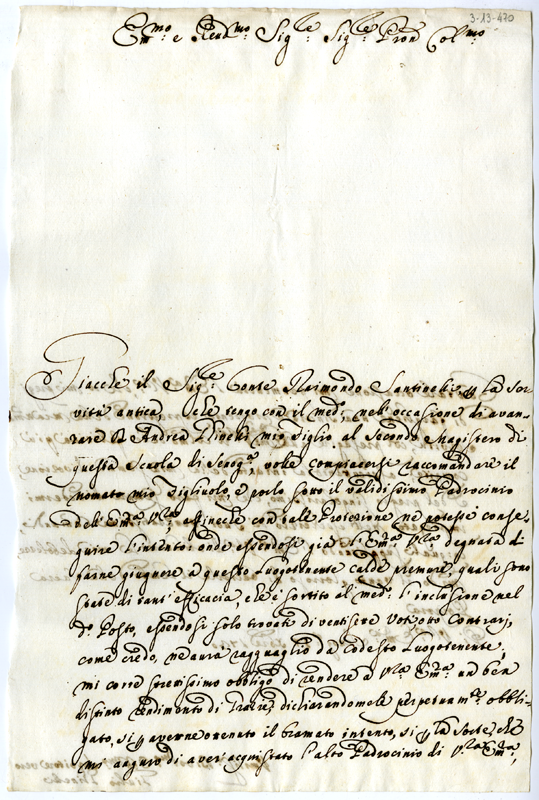 3-13-470
Em.mo e Rend.mo Sig.re Sig.re Pron Col.mo
Giacche il Sig.re Conte Raimondo Santinelli p la ser
vitù antica, che tengo con il med.o nell'occasione di avan
zare D. Andrea mio Figlio al Secondo Magistero di
questa Scuola di Senog.a volle compiacersi raccomandare il
nomato mio Figliuolo, e porlo sotto il validissimo Padrocinio
dell'Em.za V.ra affinche con tale Protezione ne potesse conse
guire l'intento: onde essendosi già l'Em.za V.ra degnata di
farne giugnere a questo Luogotenente calde premure, quali sono
state di tant'efficacia, che è sortito al med.o l'inclusione nel
d.o Posto, essendosi solo trovati di ventisette Voti otto Contrarj,
come credo, ne aurà ragguaglio da codesto Luogotenente,
mi corre strettissimo obbligo di rendere a V.ra Em.za un ben
distinto rendimento di Grazie, dichiarandomele perpetuam.te obbli-
gato, si p averne ottenuto il bramato intento, si p la Sorte, che
mi auguro di aver acquistato l'alto Padrocinio di V.ra Em.za,